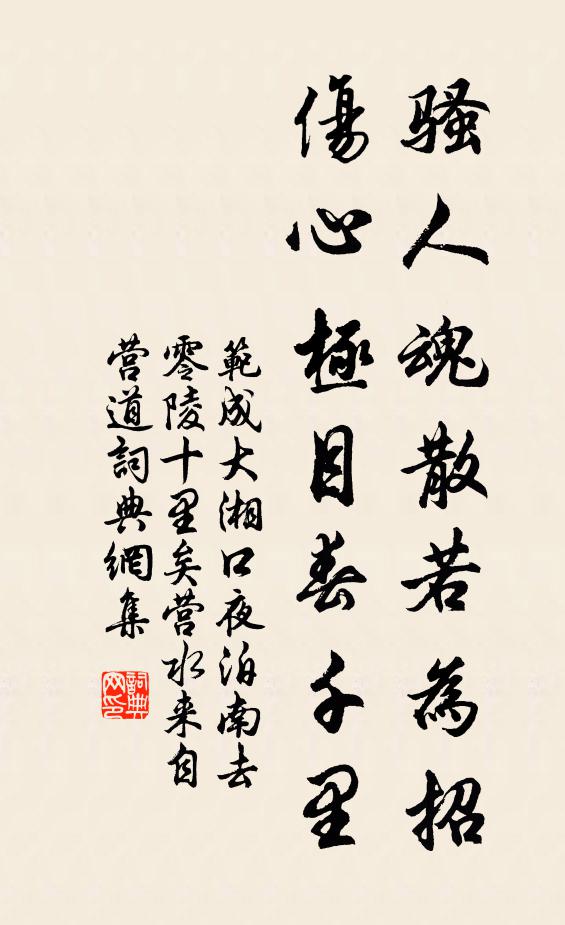 騷人魂散若為招
傷心極目春千里
範成大湘口夜泊南去
零陵十里矣营水来自
营道詞典網集
詞典
网印